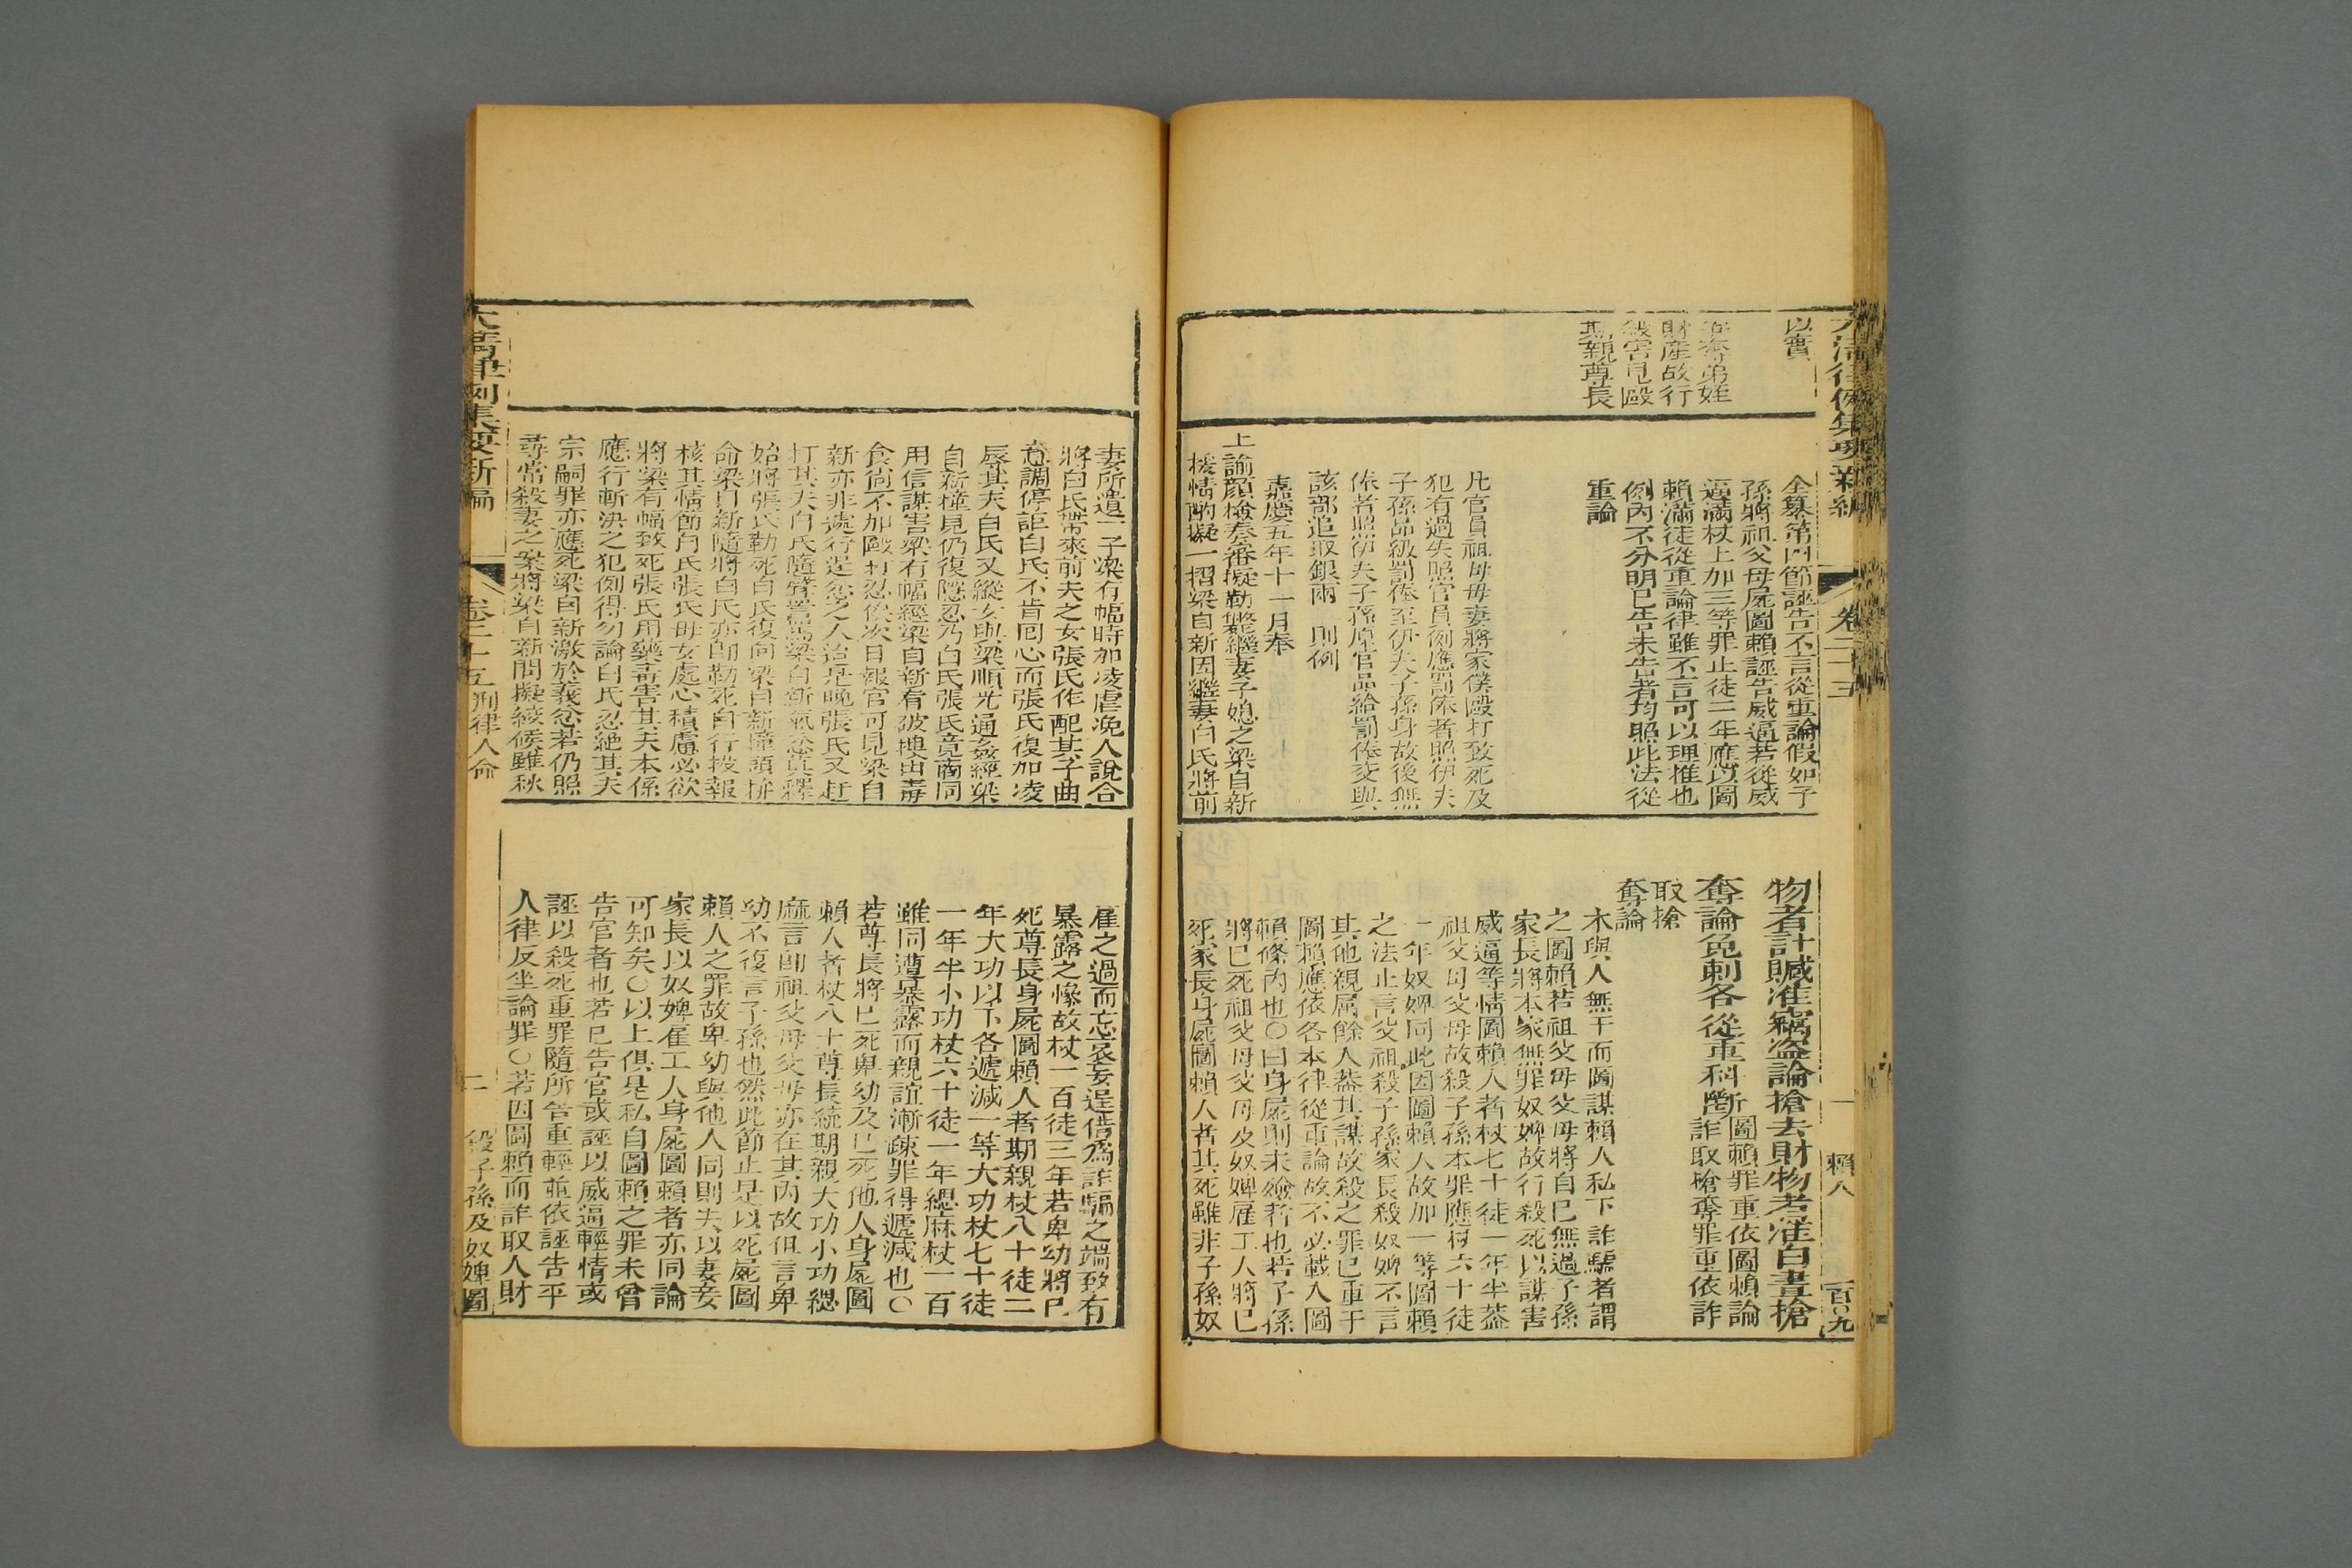 大清律例集要新編
卷二十五
一
賴人
百〇九
以實
奪弟姪
財產故行
殺害見毆
期親尊長
全纂第四節誣告不言從重論假如子
孫將祖父母屍圖賴誣告威逼若從威
逼滿杖上加三等罪止徒二年應以圖
賴滿徒從重論律雖不言可以理推也
例內不分明已告未告者均照此法從
重論
凡官員祖母母妻將家僕毆打致死及
犯有過失照官員例應罰俸者照伊夫
子孫品級罰俸至伊夫子孫身故後無
俸者照伊夫子孫原官品給罰俸交與
該部追取銀兩 則例
嘉慶五年十一月奉
上諭顏檢奏審擬勒斃繼妻子媳之梁自新
援情酌擬一摺梁自新因繼妻白氏將前
物者計贓准竊盜論搶去財物者准白晝搶
奪論免刺各從重科斷圖賴罪重依圖賴論
詐取搶奪罪重依詐
取搶
奪論
木與人無干而圖謀賴人私下詐騙者謂
之圖賴若祖父母父母將自己無過子孫
家長將本家無罪奴婢故行殺死以謀害
威逼等情圖賴人者杖七十徒一年半蓋
祖父母父母故殺子孫本罪應杖六十徒
一年奴婢同此因圖賴人故加一等圖賴
之法止言父祖殺子孫家長殺奴婢不言
其他親屬餘人蓋其謀故殺之罪已重于
圖賴應依各本律從重論故不必載入圖
賴條內也〇曰身屍則未殮者也若子孫
將已死祖父母父母及奴婢雇工人將已
死家長身屍圖賴人者其死雖非子孫奴
妻所遺一子梁有幅時加凌虐浼人說合
將白氏帶來前夫之女張氏作配其子曲
意調停詎白氏不肯回心而張氏復加凌
辱其夫白氏又縱女與梁順光通姦經梁
自新撞見仍復隱忍乃白氏張氏竟商同
用信謀害梁有幅經梁自新看破搜出毒
食尚不加毆打忍俟次日報官可見梁自
新亦非遽行逞忿之人迨是晚張氏又赶
打其夫白氏隨聲詈罵梁自新氣忿莫釋
始將張氏勒死白氏復向梁自新撞頭拚
命梁自新隨將白氏亦即勒死自行投報
核其情節白氏張氏母女處心積慮必欲
將梁有幅致死張氏用藥毒害其夫本係
應行斬決之犯例得勿論白氏忍絕其夫
宗嗣罪亦應死梁自新激於義忿若仍照
尋常殺妻之案將梁自新問擬絞候雖秋
雇之過而忘哀妄逞借為詐騙之端致有
暴露之慘故杖一百徒三年若卑幼將已
死尊長身屍圖賴人者期親杖八十徒二
年大功以下各遞減一等大功杖七十徒
一年半小功杖六十徒一年緦麻杖一百
雖同遭暴露而親誼漸疎罪得遞減也〇
若尊長將已死卑幼及已死他人身屍圖
賴人者杖八十尊長統期親大功小功緦
麻言即祖父母父母亦在其內故但言卑
幼不復言子孫也然此節止是以死屍圖
賴人之罪故卑幼與他人同則夫以妻妾
家長以奴婢雇工人身屍圖賴者亦同論
可知矣〇以上俱是私自圖賴之罪未曾
告官者也若已告官或誣以威逼輕情或
誣以殺死重罪隨所告重輕並依誣告平
人律反坐論罪〇若因圖賴而詐取人財
大清律例集要新編
卷二十五
刑律人命
二
殺子孫及奴婢圖